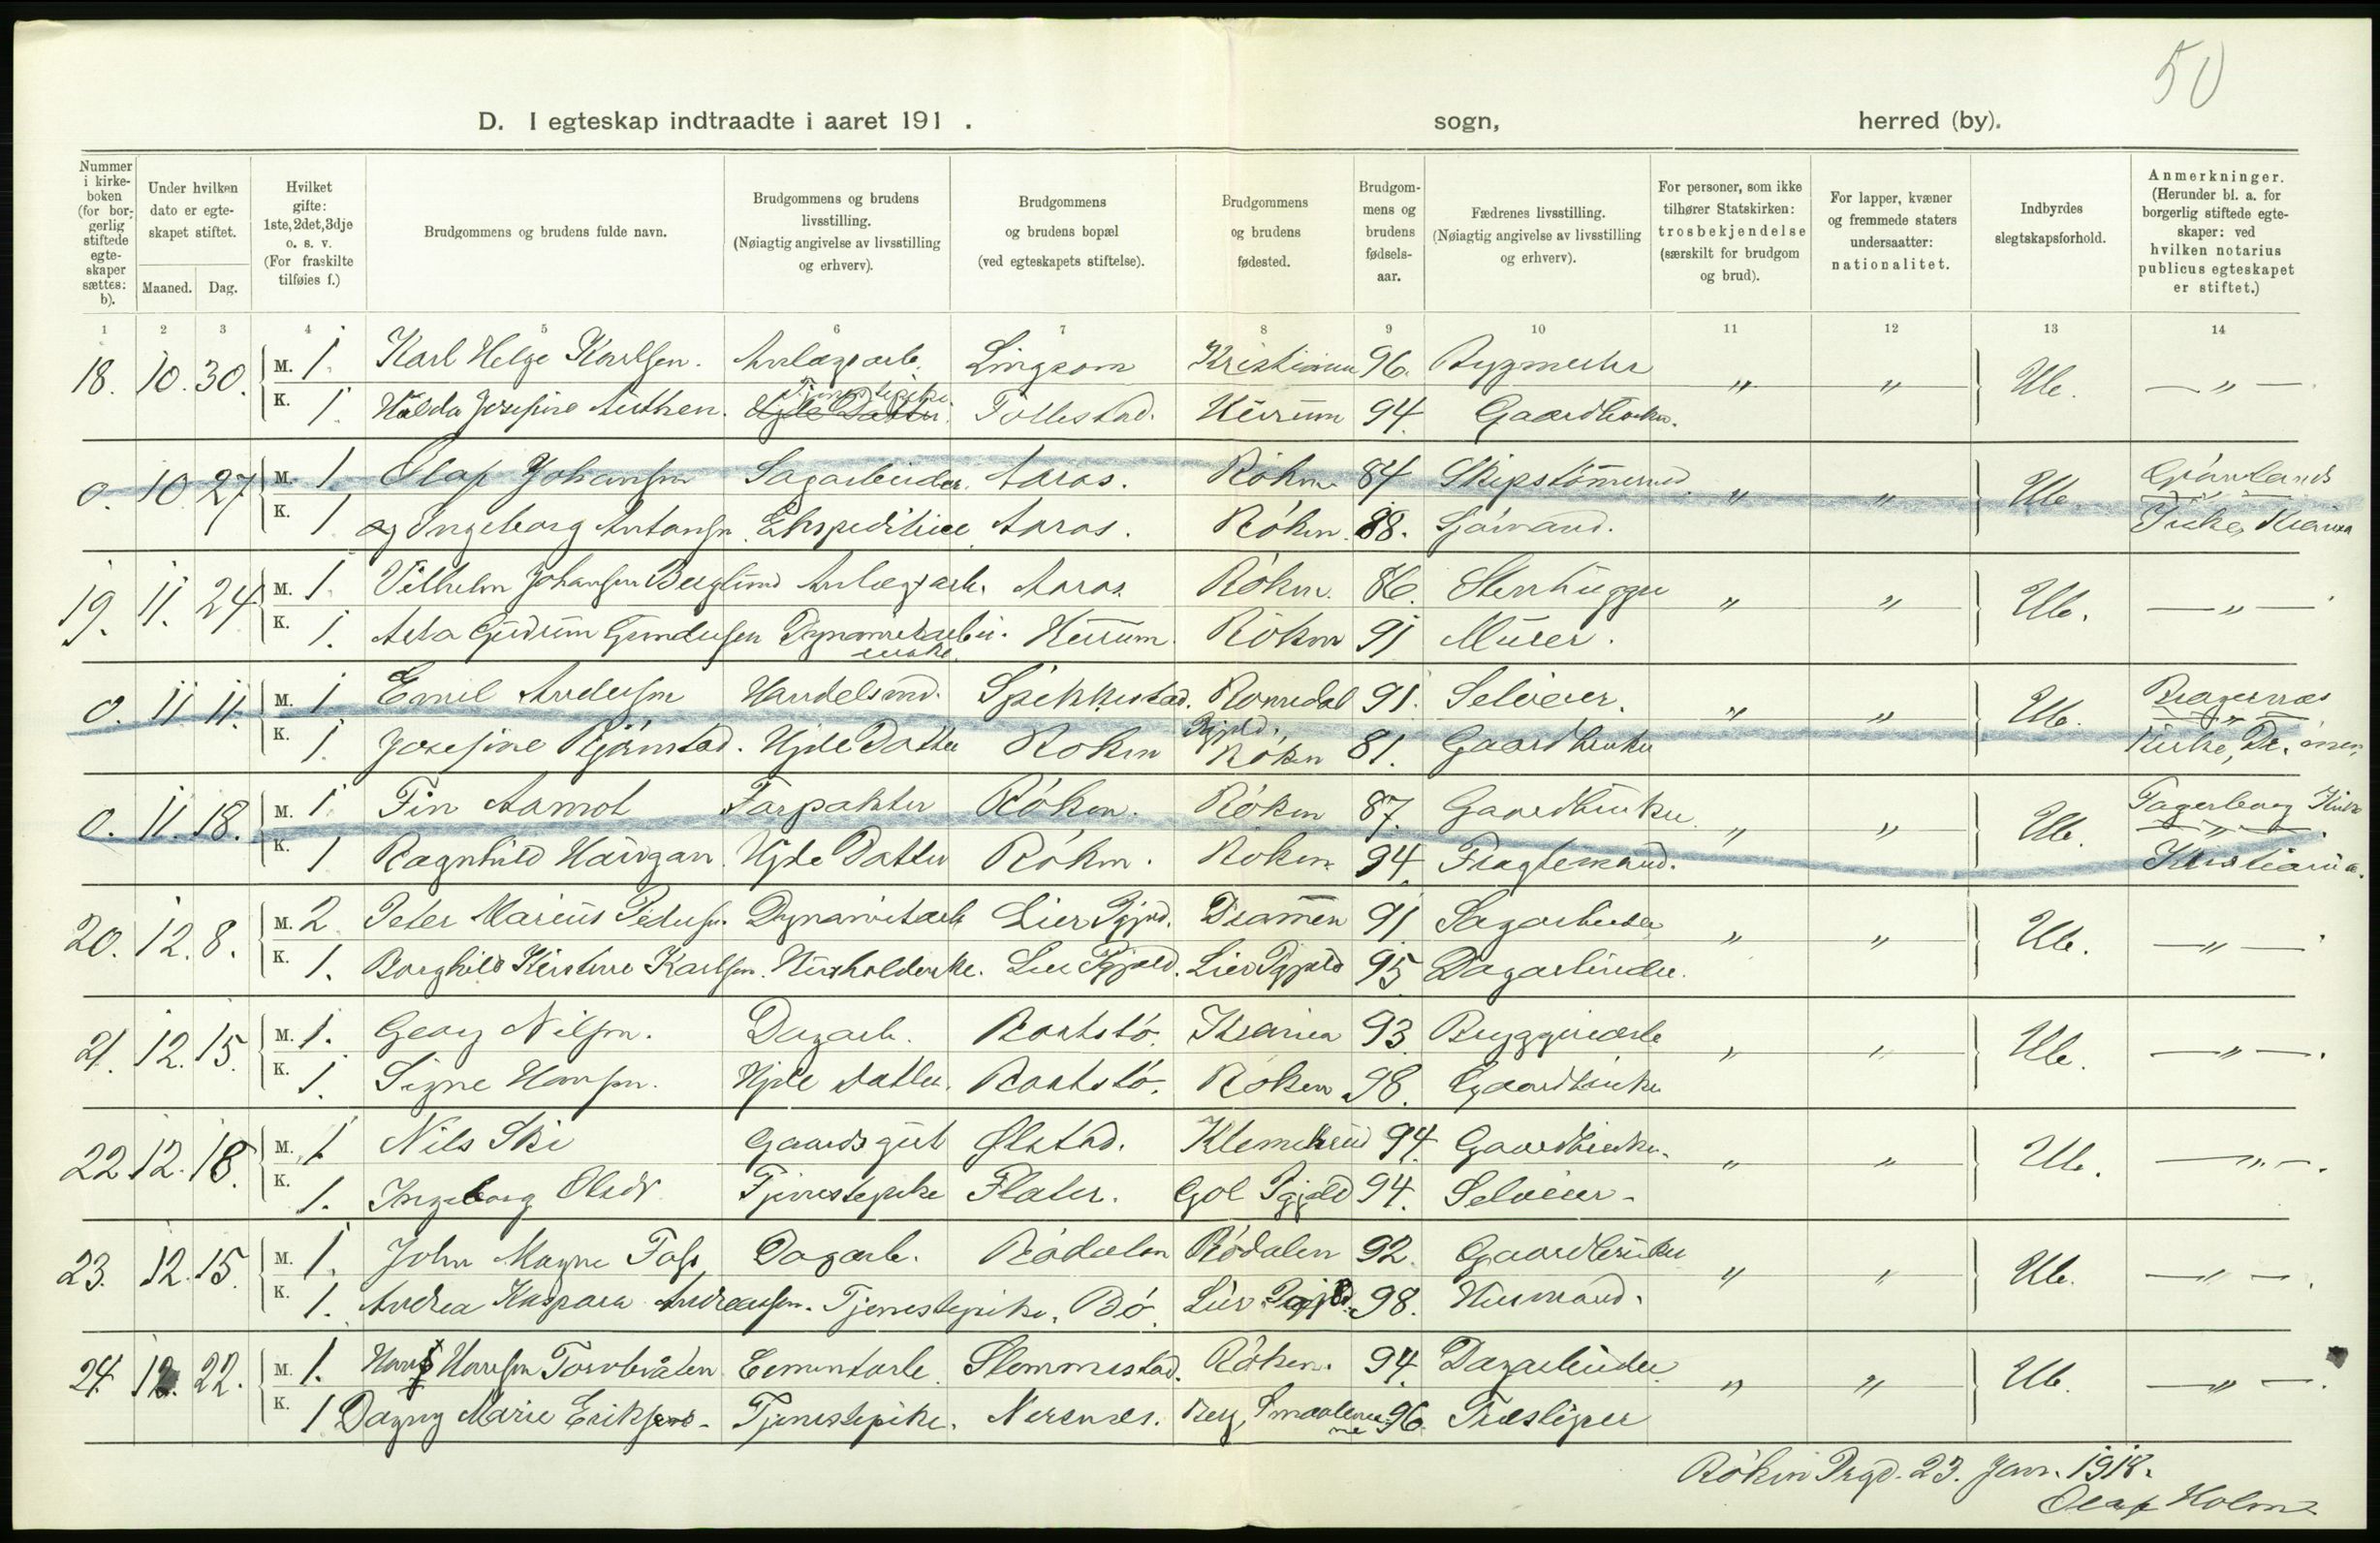 50
D. I egteskap indtraadte i aaret 191 . sogn, herred (by).
Nummer i kirkeboken (for borgerlig stiftede egteskaper sættes: b).
Under hvilken dato er egteskapet stiftet.
Maaned. Dag.
Hvilket gifte: 1ste, 2det, 3dje o. s. v. (For fraskilte tilføies f.)
Brudgommens og brudens fulde navn.
Brudgommens og brudens livsstilling. (Nøiagtig angivelse av livsstilling og erhverv).
Brudgommens og brudens bopæl (ved egteskapets stiftelse).
Brudgommens og brudens fødested.
Brudgommens og brudens fødselsaar.
Fædrenes livsstilling. (Nøiagtig angivelse av livsstilling og erhverv).
For personer, som ikke tilhører Statskirken: trosbekjendelse (særskilt for brudgom og brud).
For lapper, kvæner og fremmede staters undersaatter: nationalitet.
Indbyrdes slegtskapsforhold.
Anmerkninger. (Herunder bl. a. for borgerlig stiftede egteskaper: ved hvilken notarius publicus egteskapet er stiftet.)
1 2 3 4 5 6 7 8 9 10 11 12 13 14
18. 10. 30. M. 1. Karl Helge Karlsen. Anlægsarb. Lingsom Kristiania 96. Bygmester " " Ub. — " —
K. 1. Hulda Josefine Authen. Tjenestepike Hjde Datter Tollestad. Hurum 94. Gaardbruker.
0. 10 27 M. 1. Olaf Johansen Sagarbeider. Aaros. Røken 84 Skipstømmermd. " " Ub. Grønlands
K. 1 og Ingeborg Antonsen Ekspeditrice Aaros. Røken 88. Sjømand. Kirke, Kiania
19. 11. 24 M. 1. Vilhelm Johansen Berglund Anlægsarb. Aaros. Røken. 86. Stenhugger " " Ub. — " —
K. 1. Asta Gudrun Gundersen Dynamitarbei- Hurum. Røken 91 Murer.
0. 11 11. M. 1 Emil Andersen Handelsmd. Spikkestad. Romedal 91. Selveier. " " Ub. Bragernæs
K. 1. Josefine Bjørnstad. Hjde Datter Røken Pgjeld. Røken 81. Gaardbruker Kirke, Dr.
0. 11. 18. M. 1 Fin Aamot Forpakter Røken. Røken 87. Gaardbruker " " Ub. Fagerborg Kirke
K. 1 Ragnhild Haugan. Hjde Datter Røken. Røken 94. Fragtemand. Kristiania.
20. 12. 8. M. 2. Peter Marius Pedersen Dynamitarb Lier Pgjd. Drammen 91 Sagarbeider " " Ub. — " —
K. 1. Borghild Kirstine Karlsen. Husholderske. Lier Pgjeld. Lier Pgjeld 95 Dagarbeider.
21. 12. 15. M. 1. Georg Nilsen. Dagarb. Roatstø. Kiania 93 Bryggeriarb " " Ub. — " —.
K. 1. Signe Hansen. Hjde datter. Roatstø. Røken 98. Gaardbruker
22 12. 18. M. 1 Nils Ski Gaardsgut Ølstad. Klemetsrud 94. Gaardbruker. " " Ub. — " —.
K. 1. Ingeborg Olsdr Tjenestepike Flater. Gol Pgjeld 94. Selveier.
23. 12. 15. M. 1. John Magne Foss Dagarb. Rødalen Rødalen 92. Gaardbruker " " Ub. — " —.
K. 1. Andrea Kaspara Andreassen. Tjenestepike. Bø. Lier Pgjd. 98. Husmand.
24. 12. 22. M. 1. Hans Hansen Torvbråten Cementarb. Slemmestad. Røken. 94. Dagarbeider " " Ub. — " —.
K. 1 Dagny Marie Eriksen Tjenestepike. Nersnæs. Berg, Smaalenene 96. Træsliper
Røken Prgd. 23. Jan. 1918.
Olaf Holm